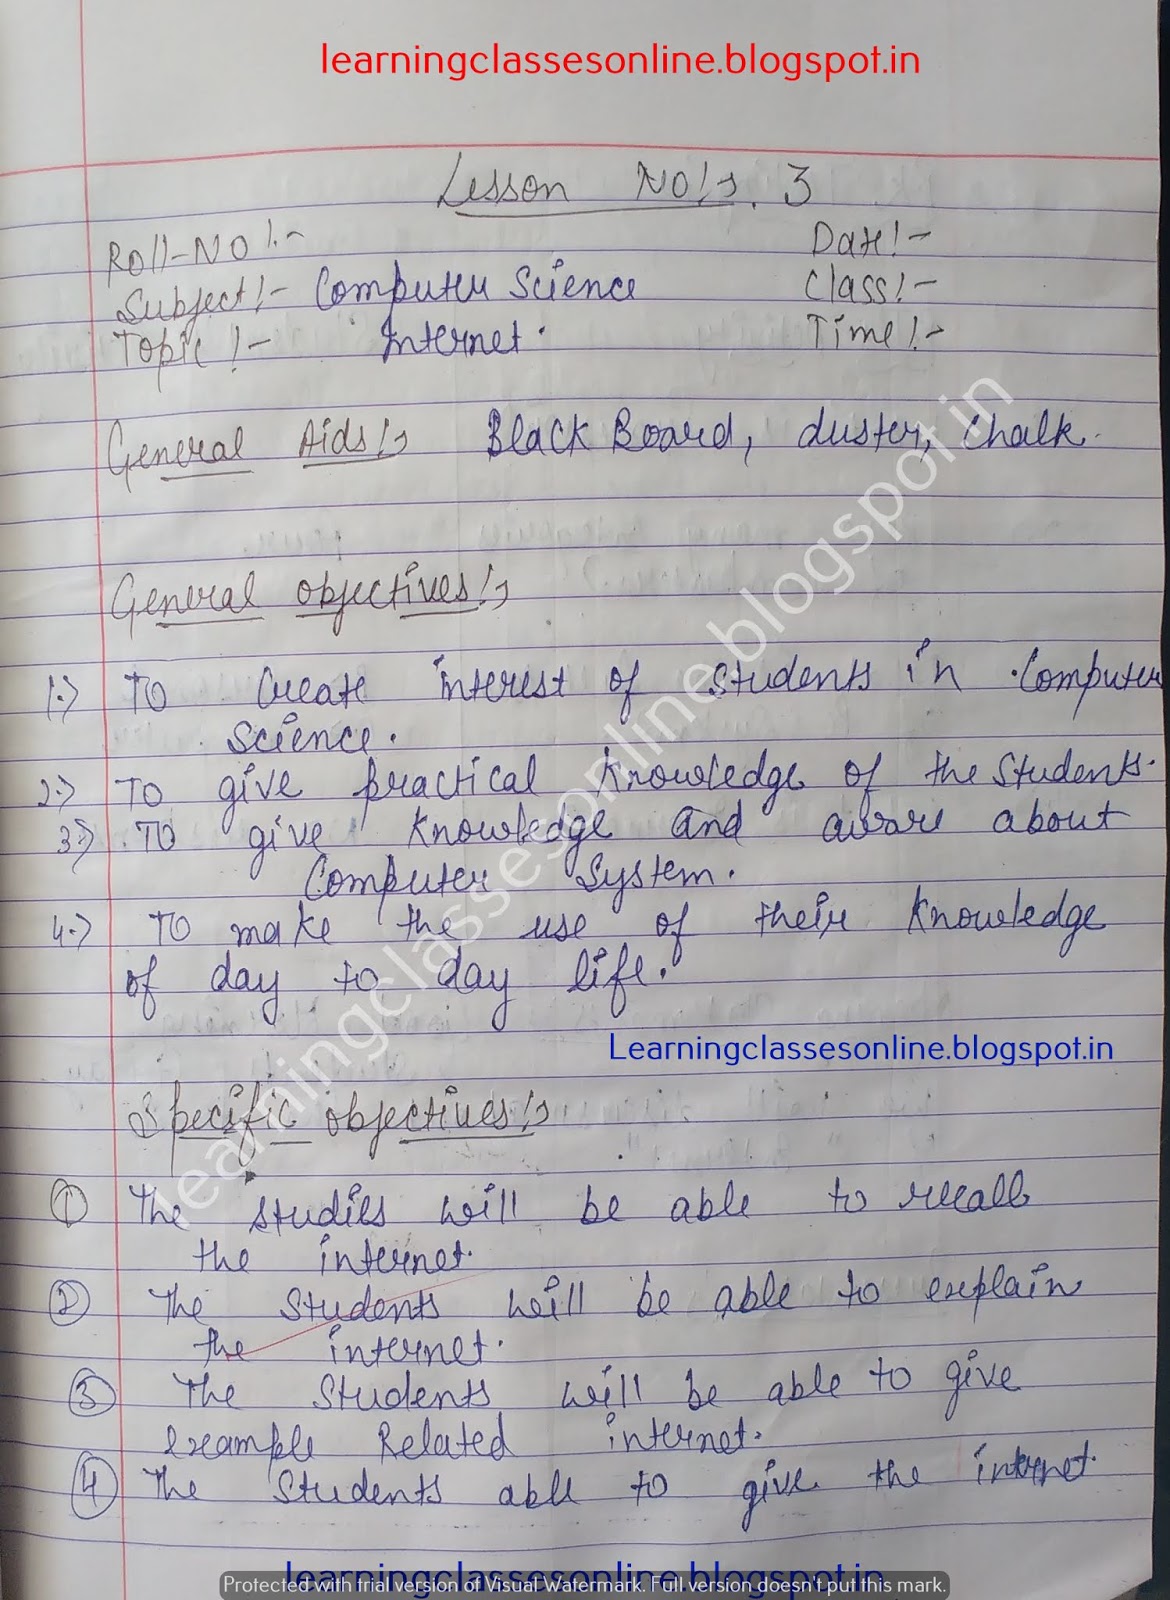 learningclassesonline.blogspot.in
Lesson No:- 3
Roll-No:-
Date:-
Subject:- Computer Science
Class:-
Topic:- Internet.
Time:-
General Aids:- Black Board, duster, chalk.
General objectives:-
1.) To Create interest of students in Computer
Science.
2.) To give practical knowledge of the students.
3.) To give knowledge and aware about
Computer System.
4.) To make the use of their knowledge
of day to day life.
learningclassesonline.blogspot.in
Learningclassesonline.blogspot.in
Specific objectives:-
① The studies will be able to recall
the internet.
② The students will be able to explain
the internet.
③ The students will be able to give
example Related internet.
④ The students able to give the internet.
learningclassesonline.blogspot.in
Protected with trial version of Visual Watermark. Full version doesn't put this mark.